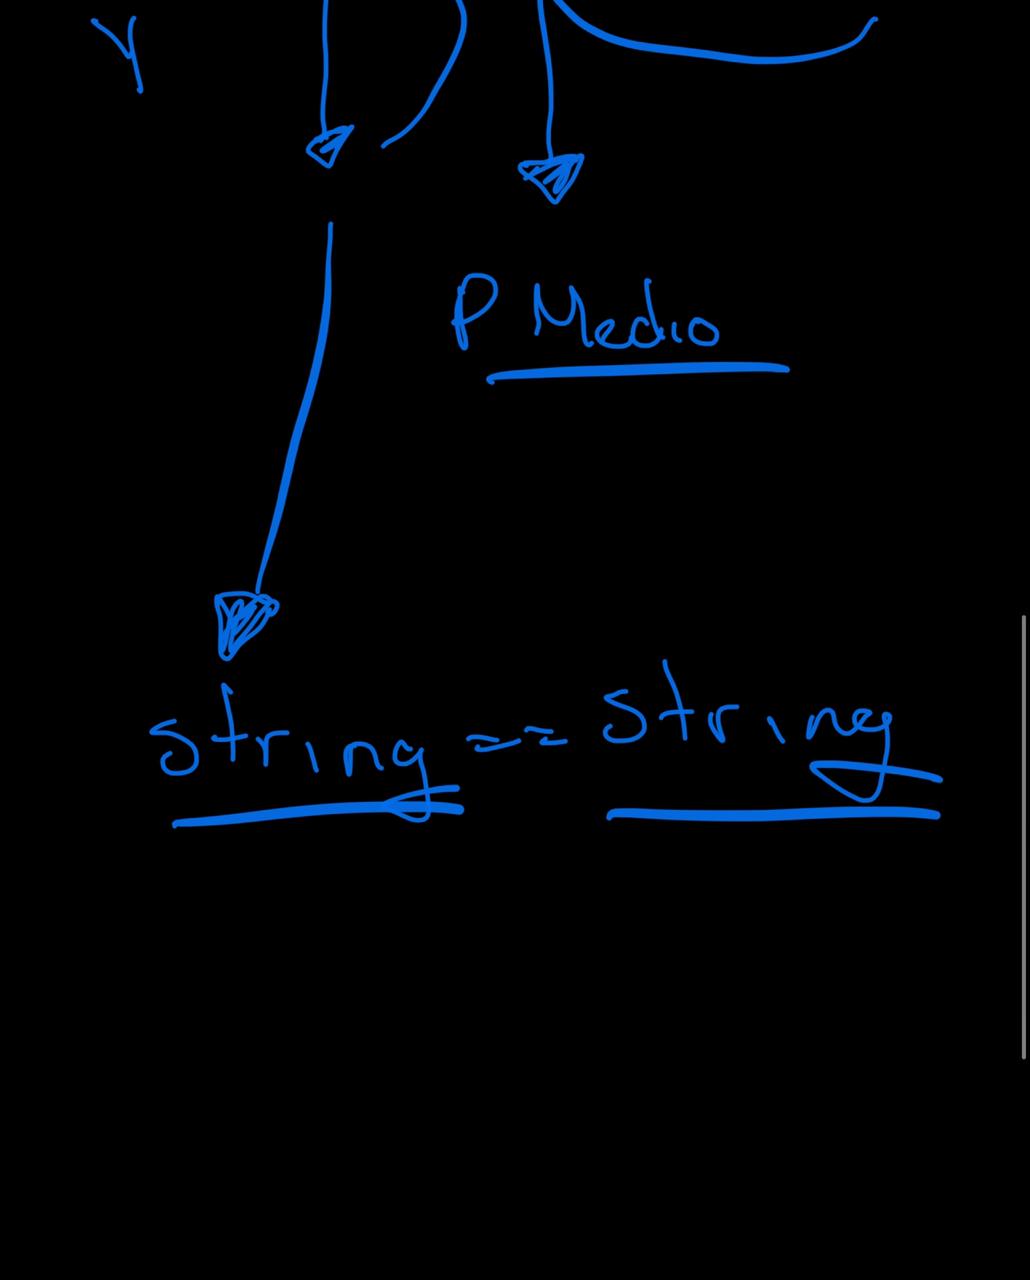 Y
P Medio
string == string